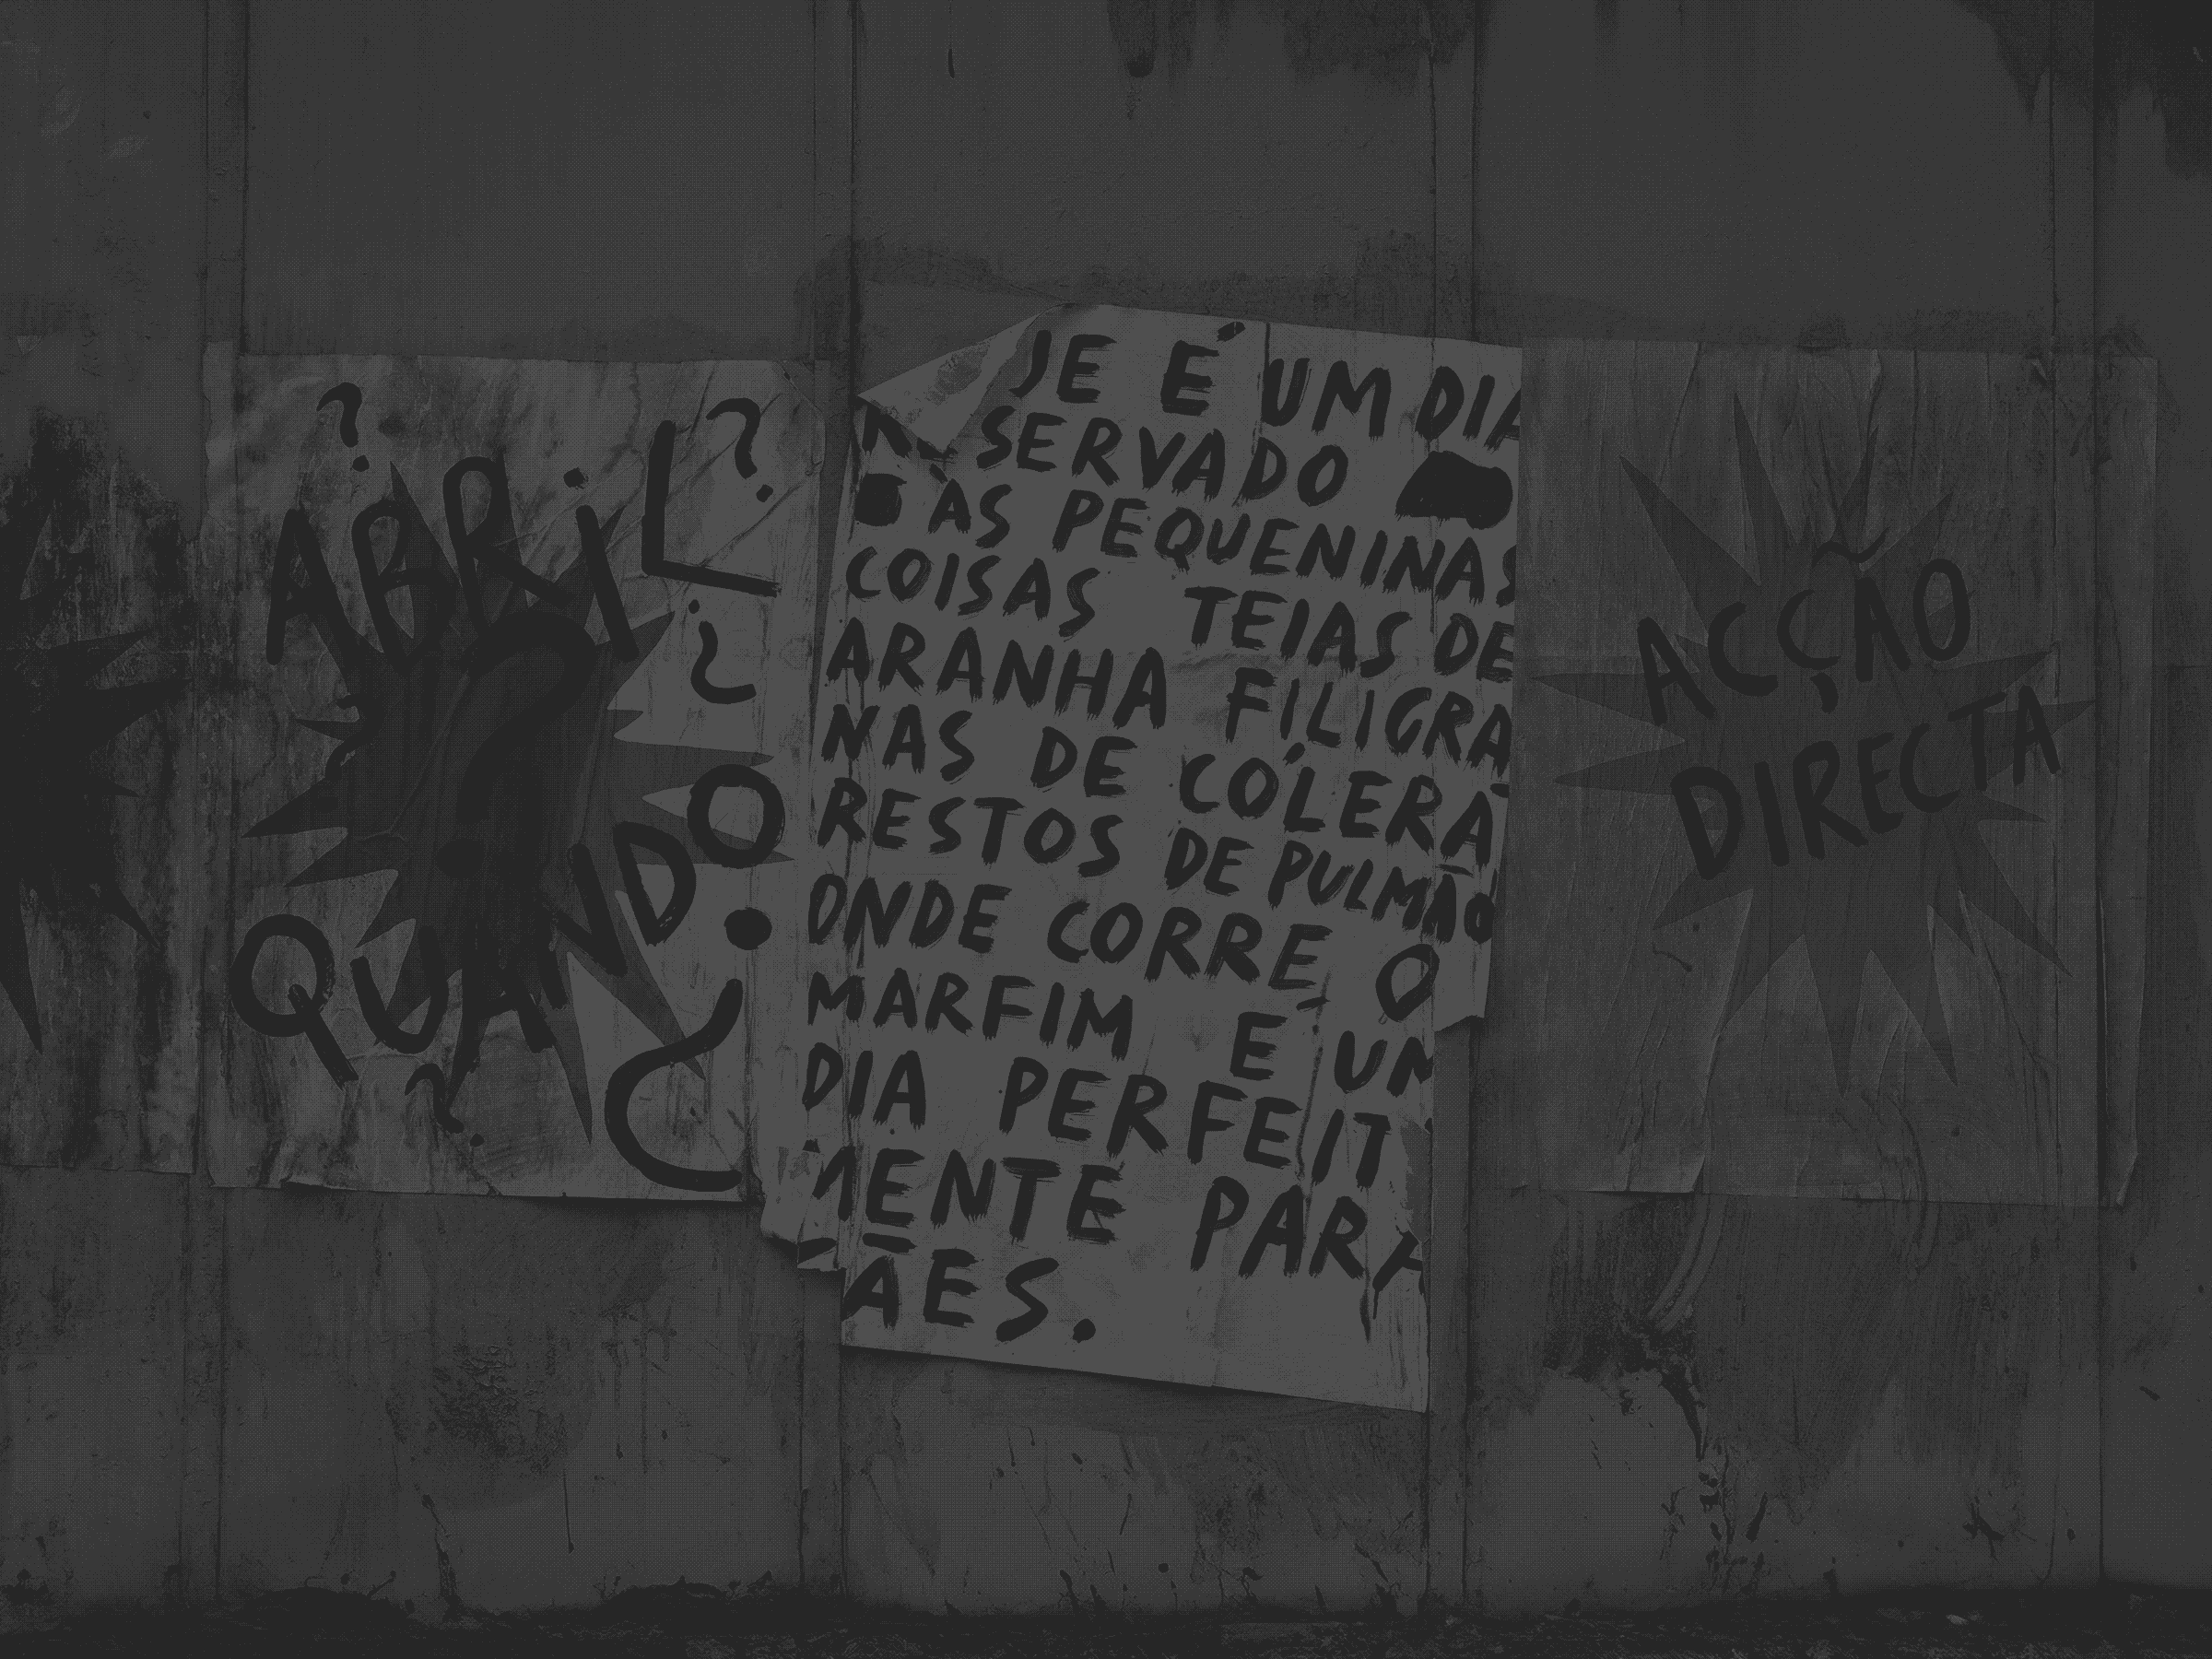 ABRiL
QUANDO
JE É UM DIA
SERVADO
ÀS PEQUENINAS
COISAS TEIAS DE
ARANHA FILIGRA
NAS DE CÓLERA
RESTOS DE PULMÃO
ONDE CORRE O
MARFIM É UM
DIA PERFEIT
MENTE PARA
ÃES.
ACÇÃO
DIRECTA